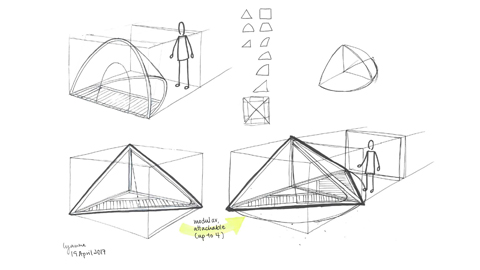 modular,
attachable
(up to 4)
Lyanne
15 April 2019